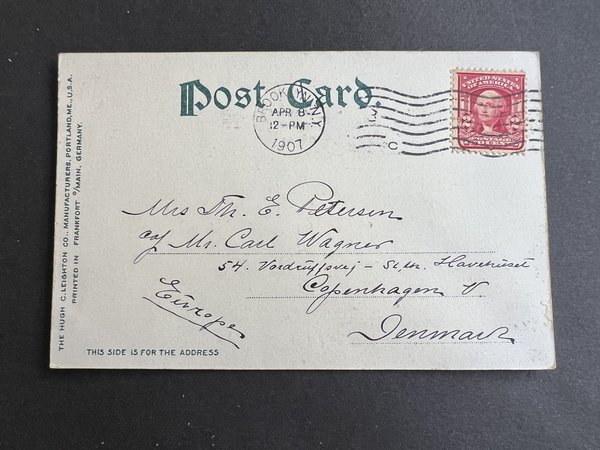 Post Card.
BROOKLYN, N.Y.
APR 8
12-PM
1907
3
C
UNITED STATES OF AMERICA
POSTAGE
2 2
THE HUGH C. LEIGHTON CO., MANUFACTURERS, PORTLAND, ME., U.S.A.
PRINTED IN FRANKFORT o/MAIN, GERMANY.
Mrs Th. E. Petersen
c/o Mr. Carl Wagner
54. – St. th. Havehuset
Copenhagen V.
Europe
Denmark
THIS SIDE IS FOR THE ADDRESS